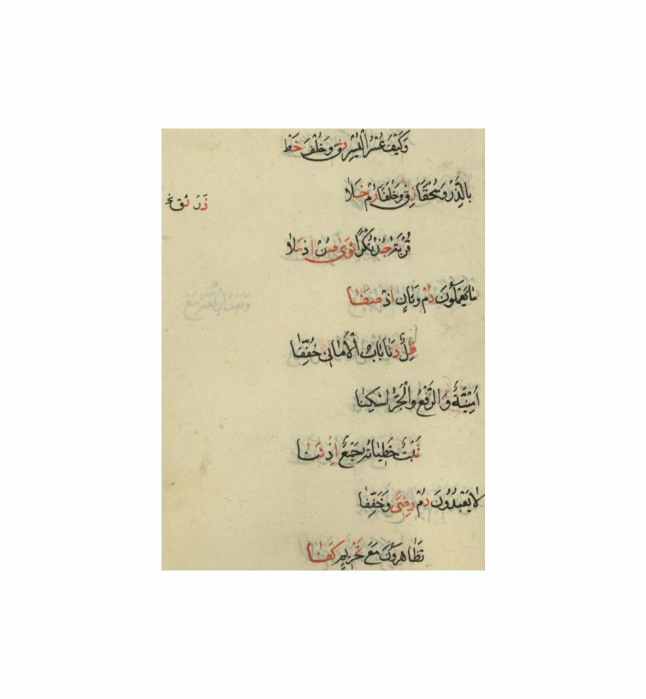 وَكَيْفَ عُسْرُ الْيُسْرِ ثِقْ وَخُلْفُ خَطْ
بِالذَّرْوِ سُحْقًا ذِقْ وَخُلْفًا رُمْ خَلَا
قُرْبَةُ جُدْ نُكْرًا ثَوَى صُنْ اِذْ مَلَا
مَا يَعْمَلُونَ دُمْ وَثَانٍ اِذْ صَفَا
ظِلٌّ دَنَا بَابُ الْأَمَانِي خُفِّفَا
أُمْنِيَّةٌ وَالرَّفْعُ وَالْجَرُّ اسْكِنَا
ثَبْتٌ خَطِيئَاتُهُ جَمْعٌ اِذْ ثَنَا
لَا يَعْبُدُونَ دُمْ رِضًى وَخَفِّفَا
تَظَاهَرُونَ مَعَ تَحْرِيمٍ كَفَا